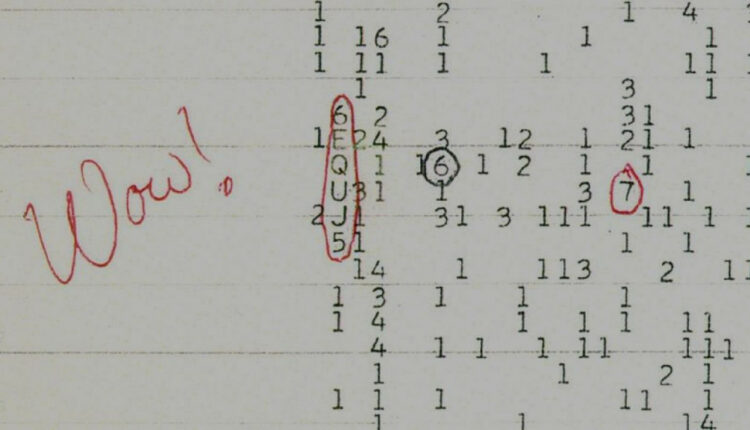 1 2 1 4
1 16 1 1 1
1 11 1 1 11 1
1 3 1
6 2 31
1 E 24 3 12 1 21 1
Wow!
Q 1 16 1 2 1 1 1
U31 1 3 7 1
2 J1 31 3 111 11 1 1
51 1 1
14 1 113 2 11
1 3 1 1 1
1 4 1 1 1 11
4 1 1 1 11 111
1 1 2 1
1 1 1 11 1
1 1 14